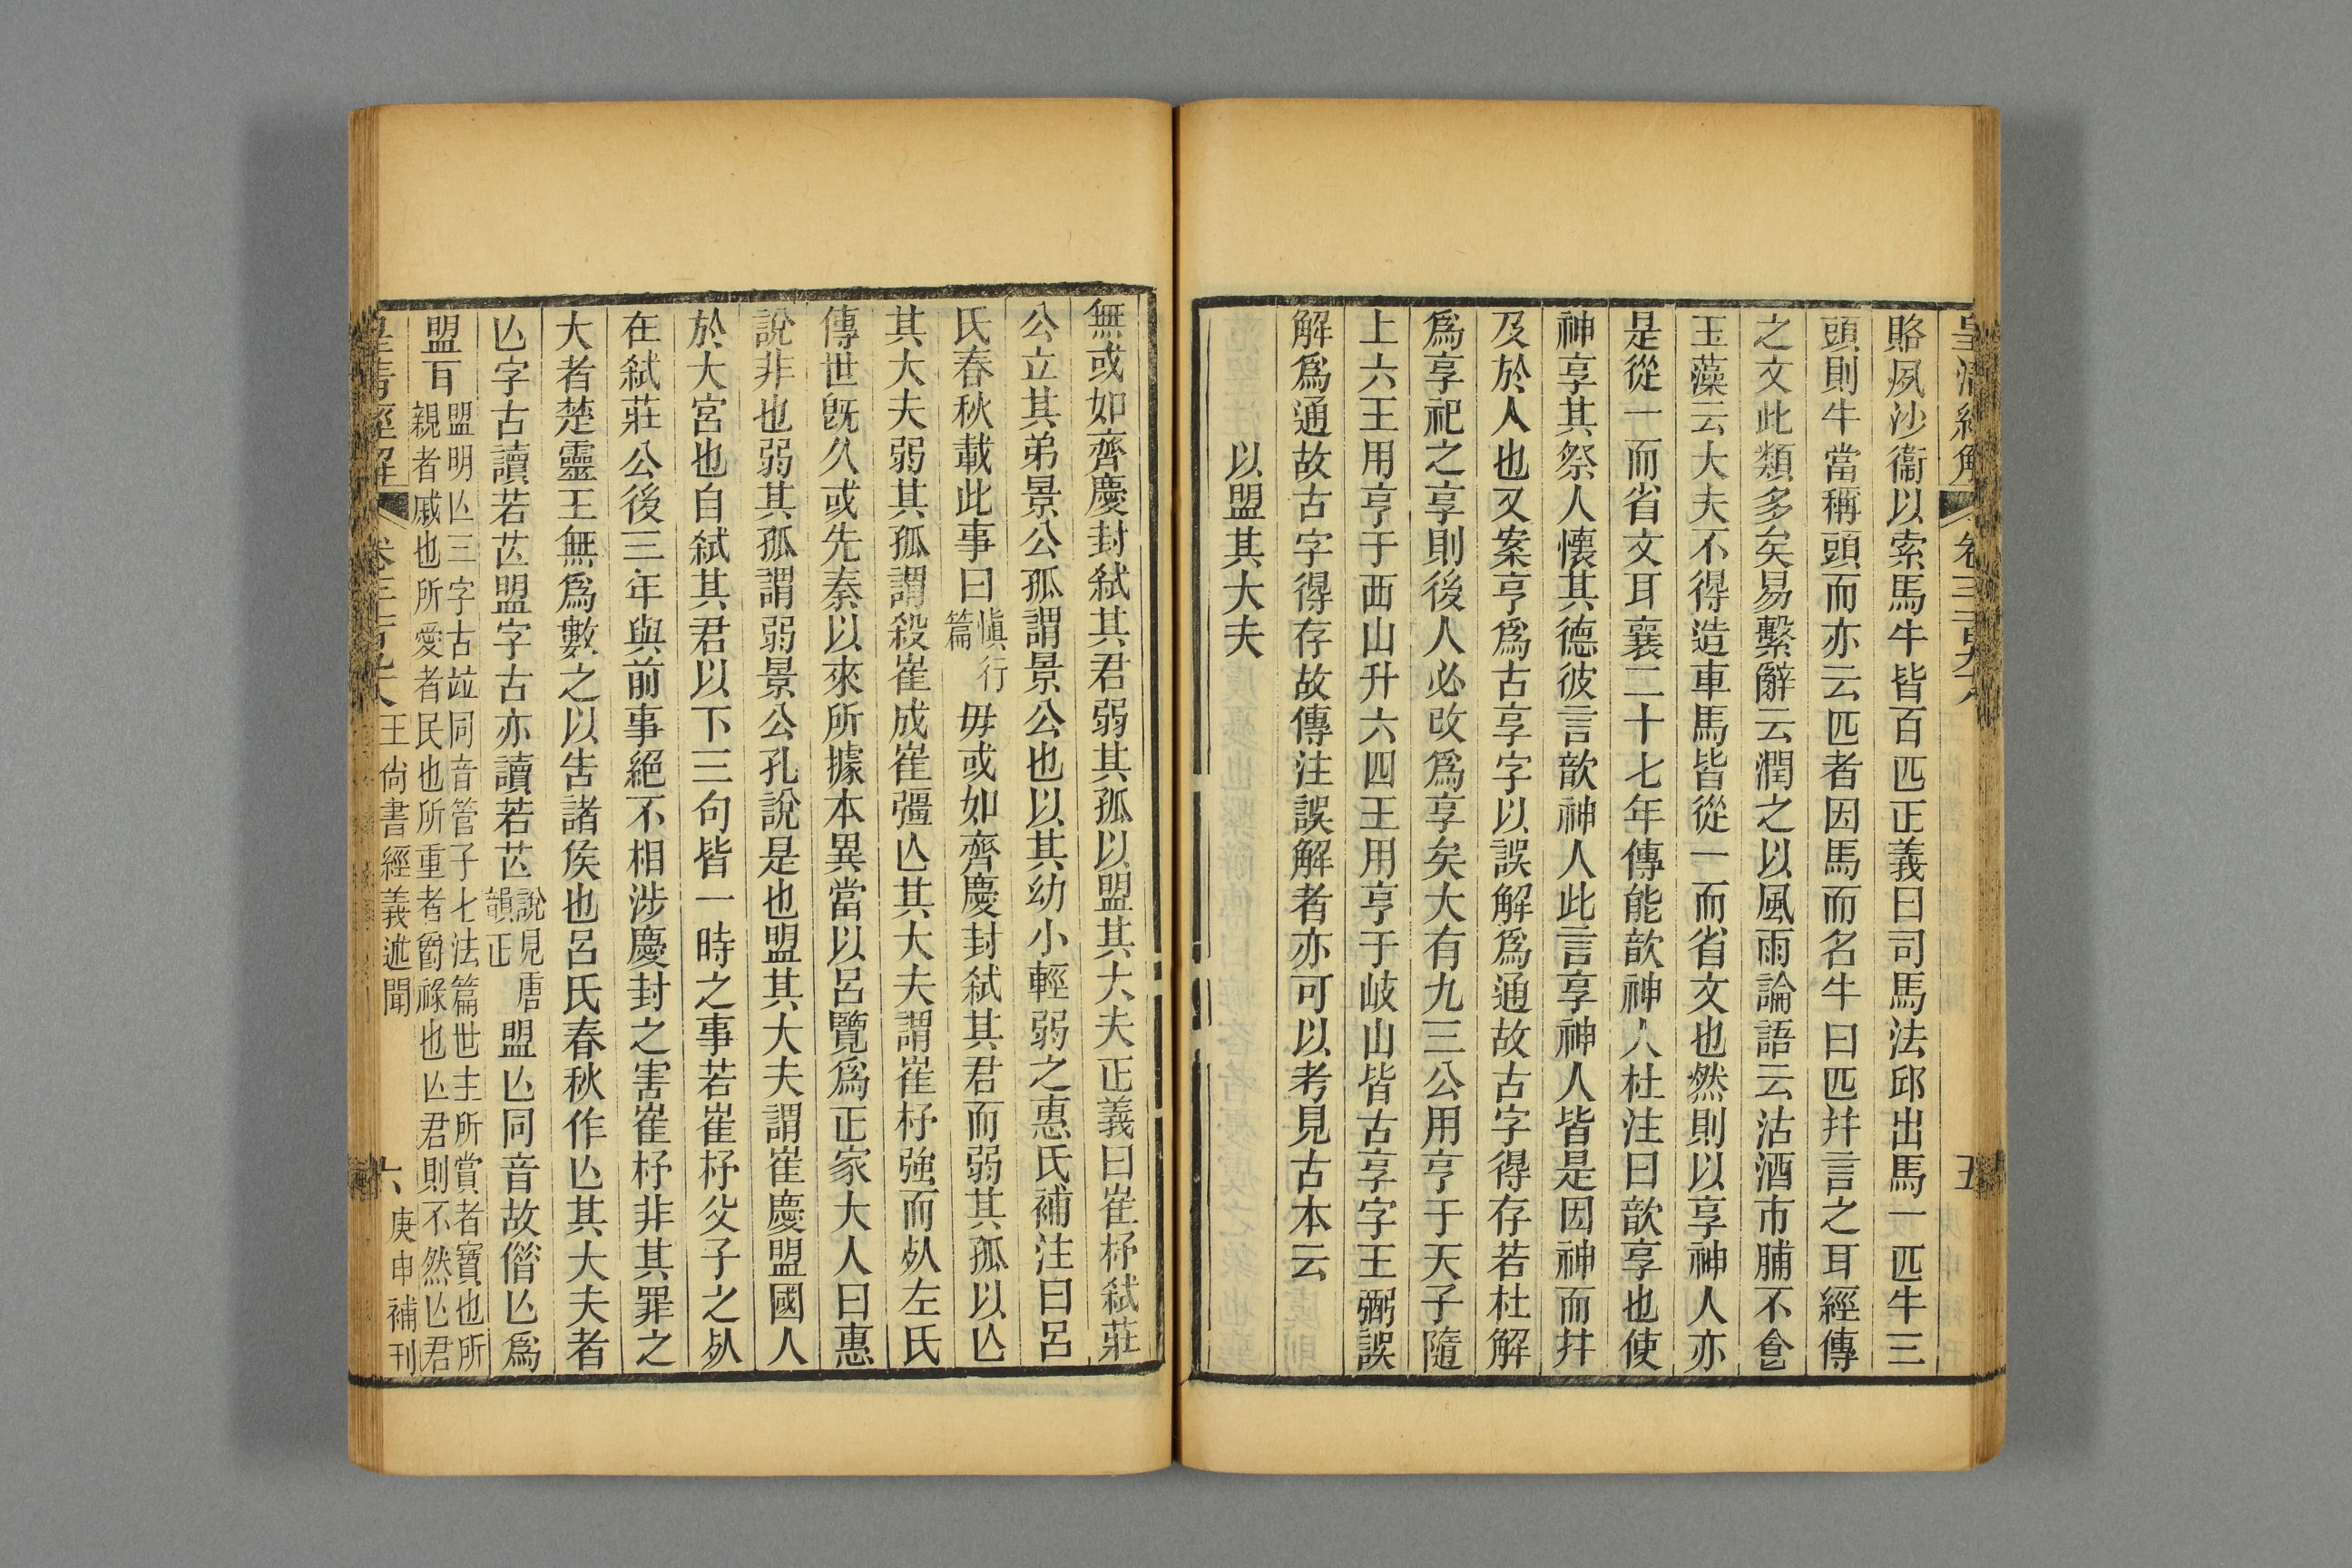 賂夙沙衞以索馬牛皆百匹正義曰司馬法邱出馬一匹牛三
頭則牛當稱頭而亦云匹者因馬而名牛曰匹幷言之耳經傳
之文此類多矣易繫辭云潤之以風雨論語云沽酒市脯不食
玉藻云大夫不得造車馬皆從一而省文也然則以享神人亦
是從一而省文耳襄二十七年傳能歆神人杜注曰歆享也使
神享其祭人懷其德彼言歆神人此言享神人皆是因神而幷
及於人也又案亨爲古享字以誤解爲通故古字得存若杜解
爲享祀之享則後人必改爲享矣大有九三公用亨于天子隨
上六王用亨于西山升六四王用亨于岐山皆古享字王弼誤
解爲通故古字得存故傳注誤解者亦可以考見古本云
以盟其大夫
無或如齊慶封弑其君弱其孤以盟其大夫正義曰崔杼弑莊
公立其弟景公孤謂景公也以其幼小輕弱之惠氏補注曰呂
氏春秋載此事曰愼行篇毋或如齊慶封弑其君而弱其孤以亾
其大夫弱其孤謂殺崔成崔彊亾其大夫謂崔杼強而𣦸左氏
傳世旣久或先秦以來所據本異當以呂覽爲正家大人曰惠
說非也弱其孤謂弱景公孔說是也盟其大夫謂崔慶盟國人
於大宮也自弑其君以下三句皆一時之事若崔杼父子之𣦸
在弑莊公後三年與前事絕不相涉慶封之害崔杼非其罪之
大者楚靈王無爲數之以吿諸矦也呂氏春秋作亾其大夫者
亾字古讀若芒盟字古亦讀若芒說見唐韻正盟亾同音故借亾爲
盟盲盟明亾三字古竝同音管子七法篇世主所賞者寶也所
親者戚也所愛者民也所重者爵祿也亾君則不然亾君
皇淸經解 王尙書經義述聞 六 庚申補刊